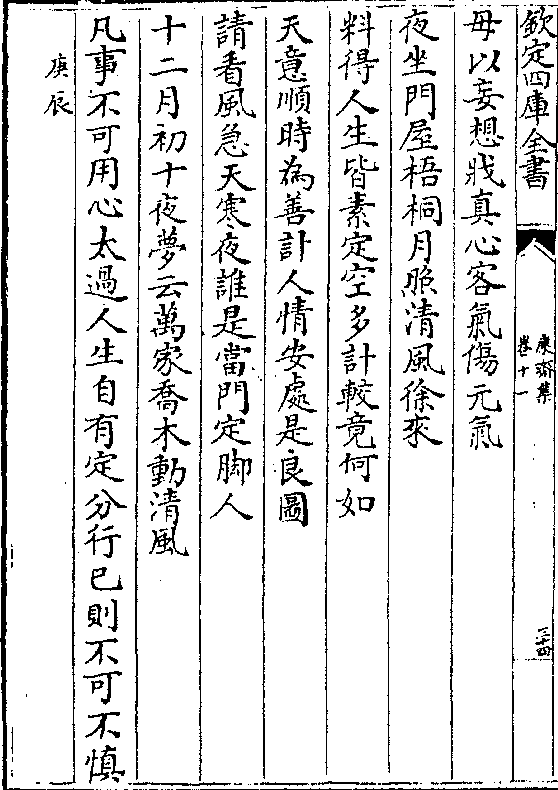 欽定四庫全書
康齋集
卷十一
三十四
毋以妄想戕真心客氣傷元氣
夜坐門屋梧桐月照清風徐來
料得人生皆素定空多計較竟何如
天意順時為善計人情安處是良圖
請看風急天寒夜誰是當門定脚人
十二月初十夜夢云萬家喬木動清風
凡事不可用心太過人生自有定分行已則不可不慎
庚辰